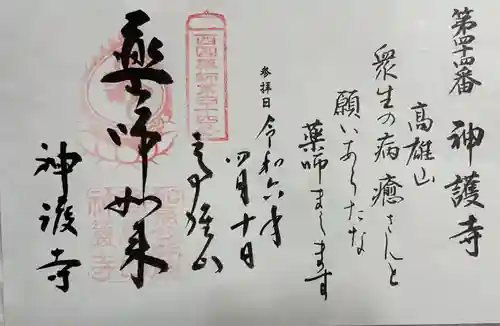 第四十四番 神護寺
高雄山
衆生の病癒さんと
願いあらたな
薬師まします
参拝日 令和六年
四月十日
西国薬師第四十四番
高雄山
薬師如来
神護寺